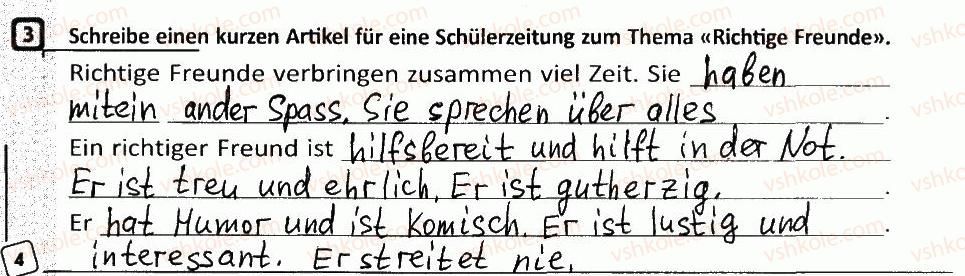 3 Schreibe einen kurzen Artikel für eine Schülerzeitung zum Thema «Richtige Freunde».
Richtige Freunde verbringen zusammen viel Zeit. Sie haben
mitein ander Spass. Sie sprechen über alles.
Ein richtiger Freund ist hilfsbereit und hilft in der Not.
Er ist treu und ehrlich. Er ist gutherzig.
Er hat Humor und ist komisch. Er ist lustig und
4 interessant. Er streitet nie.